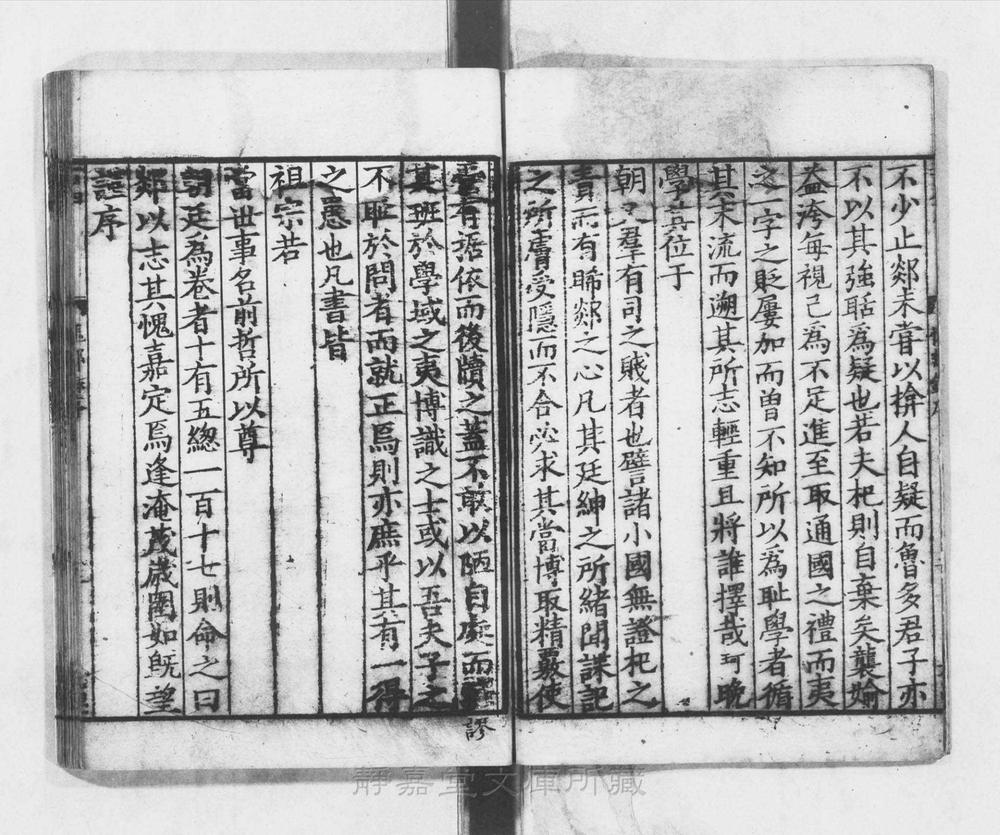 不少止郯未嘗以揜人自疑而魯多君子亦
不以其強聒為疑也若夫杞則自棄矣襲媮
益洿每視己為不足進至取通國之禮而夷
之一字之貶屢加而曾不知所以為耻學者循
其末流而遡其所志輕重且將誰擇哉珂晚
學其位于
朝又羣有司之賤者也譬諸小國無證杞之
責而有睎郯之心凡其廷紳之所緒聞諜記
之所膚受隱而不合必求其當博取精覈使
臺有據依而後牘之蓋不敢以陋自處而
其班於學域之夷博識之士或以吾夫子之
不耻於問者而就正焉則亦庶乎其有一得
之愚也凡書皆
祖宗若
當世事名前哲所以尊
朝廷為卷者十有五總一百十七則命之曰
郯以志其愧嘉定焉逢淹茂歲圉如既望
謳序
謬
靜嘉堂文庫所藏